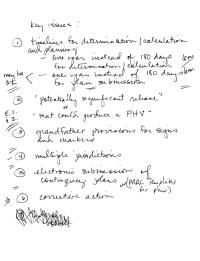 Key issues:
① timelines for determination/calculation
and planning
— one year instead of 180 days
for determination/calculation
— one year instead of 180 days
for plan submission
may be
② "potentially significant release"
"that could produce a PHV"
③ grandfather provisions for signs
and markers
④ multiple jurisdictions
⑤ electronic submission of
contingency plans
⑥ corrective action